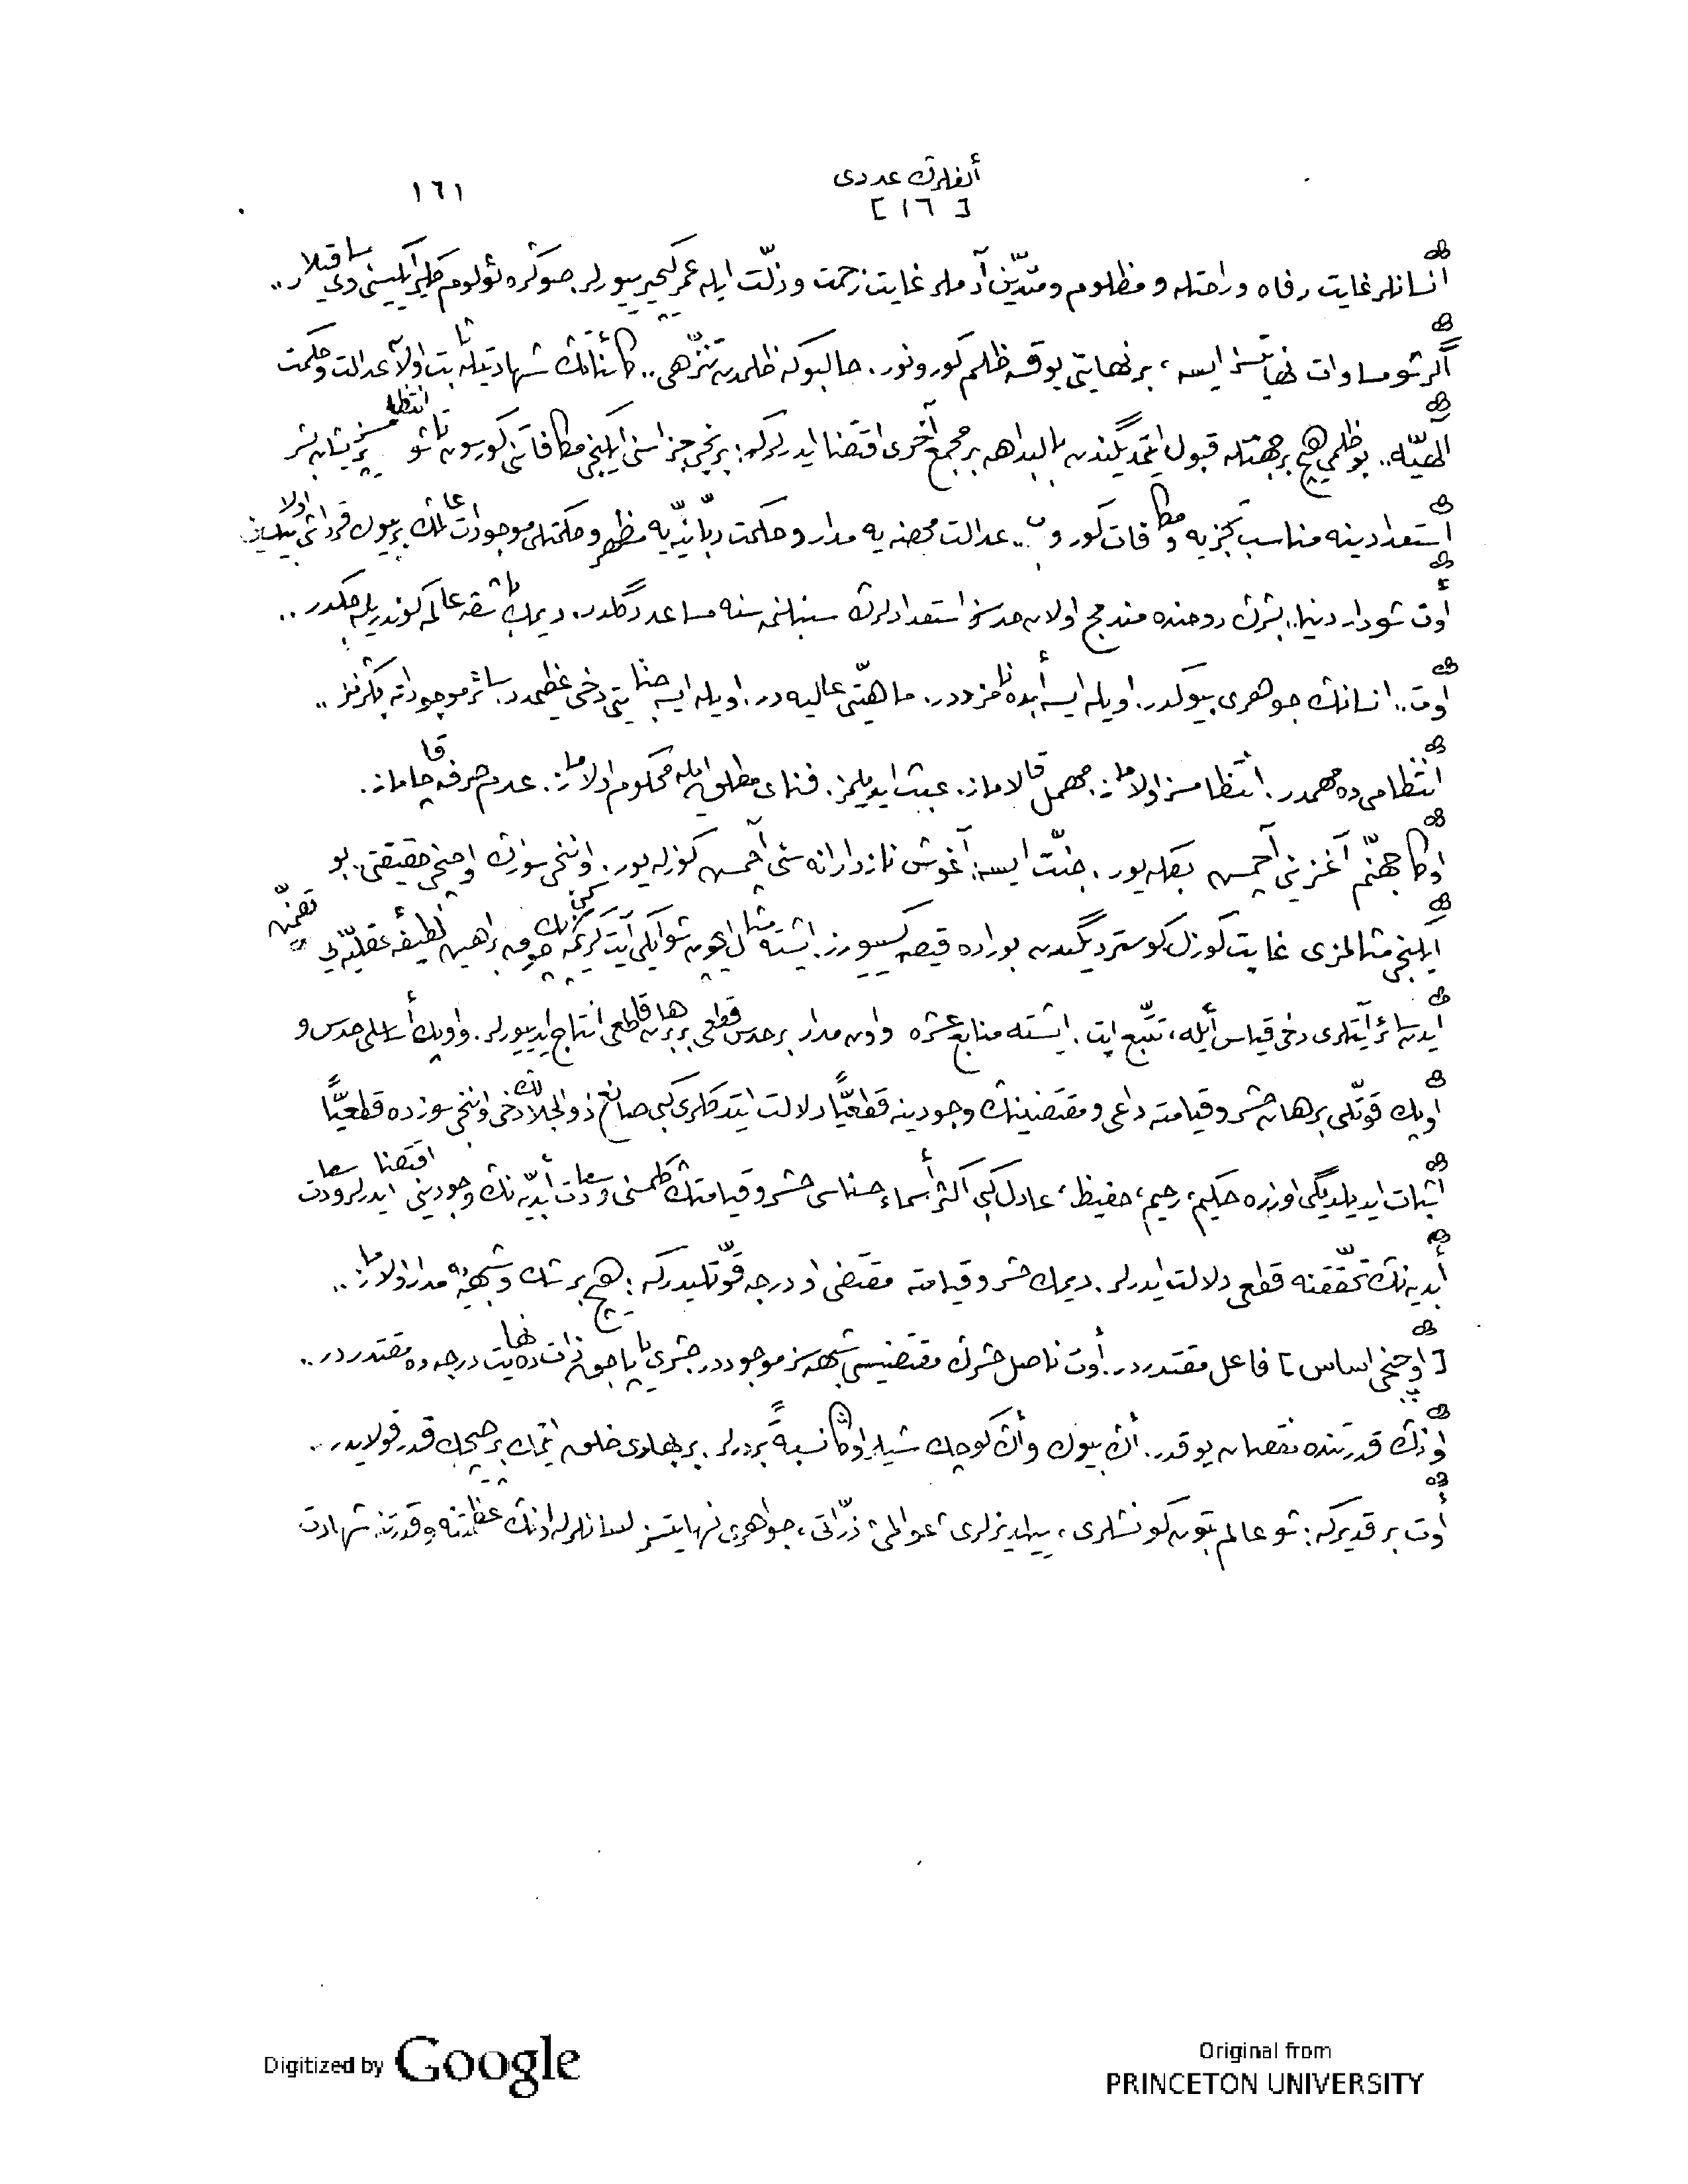 ألفلرك عددى
١٦١
[ ١٦ ]
انسانلر غايت رفاه و راحتله و مظلوم و متديّن آدملر غايت زحمت و ذلّت ايله عمر كچيرييورلر. صوكره ئولوم كلير ايكيسنى مساوى قيلار..
أگر شو مساوات نهايتسز ايسه، بر نهايتى يوقسه ظلم كورونور. حالبوكه ظلمدن تنزّهى.. كائناتك شهادتيله ثابت اولان عدالت و حكمت
الهيّه.. بو ظلمى هيچ بر جهتله قبول ايتمديگندن بالبداهه بر مجمع آخرى اقتضا ايدرلركه: برنجى جزاسنى ايكنجى مكافاتنى كورسون تا شو انتظامسز پريشان بشر
استعدادينه مناسب تجزيه و مكافات كوروب.. عدالت محضه يه مدار و حكمت ربّانيّه يه مظهر و حكمتلى موجودات عالمك بر بيوك قرداشى اولا بيلسين
أوت شو دار دنيا.. بشرك روحنده مندمج اولان حدسز استعدادلرك سنبللنمه سنه مساعد دگلدر. ديمك باشقه عالمه كوندريله جكدر..
أوت.. انسانك جوهرى بيوكدر. اويله ايسه أبده نامزددر. ماهيّتى عاليه در. اويله ايسه جنايتى دخى عظيمدر. سائر موجوداته بكزه مز..
انتظامى ده مهمدر. انتظامسز اولاماز. مهمل قالاماز. عبث ايديلمز. فناى مطلق ايله محكوم اولاماز. عدم صرفه قاچاماز.
اوكا جهنّم آغزينى آچمش بكله يور. جنّت ايسه: آغوش نازدارانه سنى آچمش كوزله يور. اوننجى سوزك اوچنجى حقيقتى.. بو
ايكنجى مثالمزى غايت كوزل كوسترديگندن بوراده قيصه كسييورز. ايشته مثال ايچون شو ايكى آيت كريمه كبى پك چوق براهين لطيفهٔ عقليّه يى تضمّن
ايدن سائر آيتلرى دخى قياس أيله، تتبّع ايت. ايشته منابع عشره و اون مدار بر حدس قطعى بر برهان قاطعى انتاج ايدييورلر. و او پك أساسلى حدس و
او پك قوّتلى برهان حشر و قيامته داعى و مقتضينك وجودينه قطعيًّا دلالت ايتدكلرى كبى صانع ذو الجلالك دخى اوننجى سوزده قطعيًّا
اثبات ايديلديگى اوزره حكيم، رحيم، حفيظ، عادل كبى اكثر أسماء حسناسى حشر و قيامتك كلمسنى و سعادت أبديّه نك وجودينى اقتضا ايدرلر و سعادت
أبديه نك تحقّقنه قطعى دلالت ايدرلر. ديمك حشر و قيامته مقتضى او درجه قوّتليدركه: هيچ بر شك و شبهه يه مدار اولاماز..
[ اوچنجى اساس ] فاعل مقتدردر. أوت ناصل حشرك مقتضيسى شبهه سز موجوددر. حشرى ياپاجق ذات ده نهايت درجه ده مقتدردر..
اونك قدرتنده نقصان يوقدر. أك بيوك و أك كوچك شيلر اوكا نسبةً بردرلر. بر بهارى خلق ايتمك بر چيچك قدر قولايدر..
أوت بر قديركه: شو عالم بتون كونشلرى، ييلديزلرى، عوالمى، ذرّاتى، جواهرى نهايتسز لسانلرله اونك عظمتنه و قدرتنه شهادت
Digitized by Google
Original from
PRINCETON UNIVERSITY